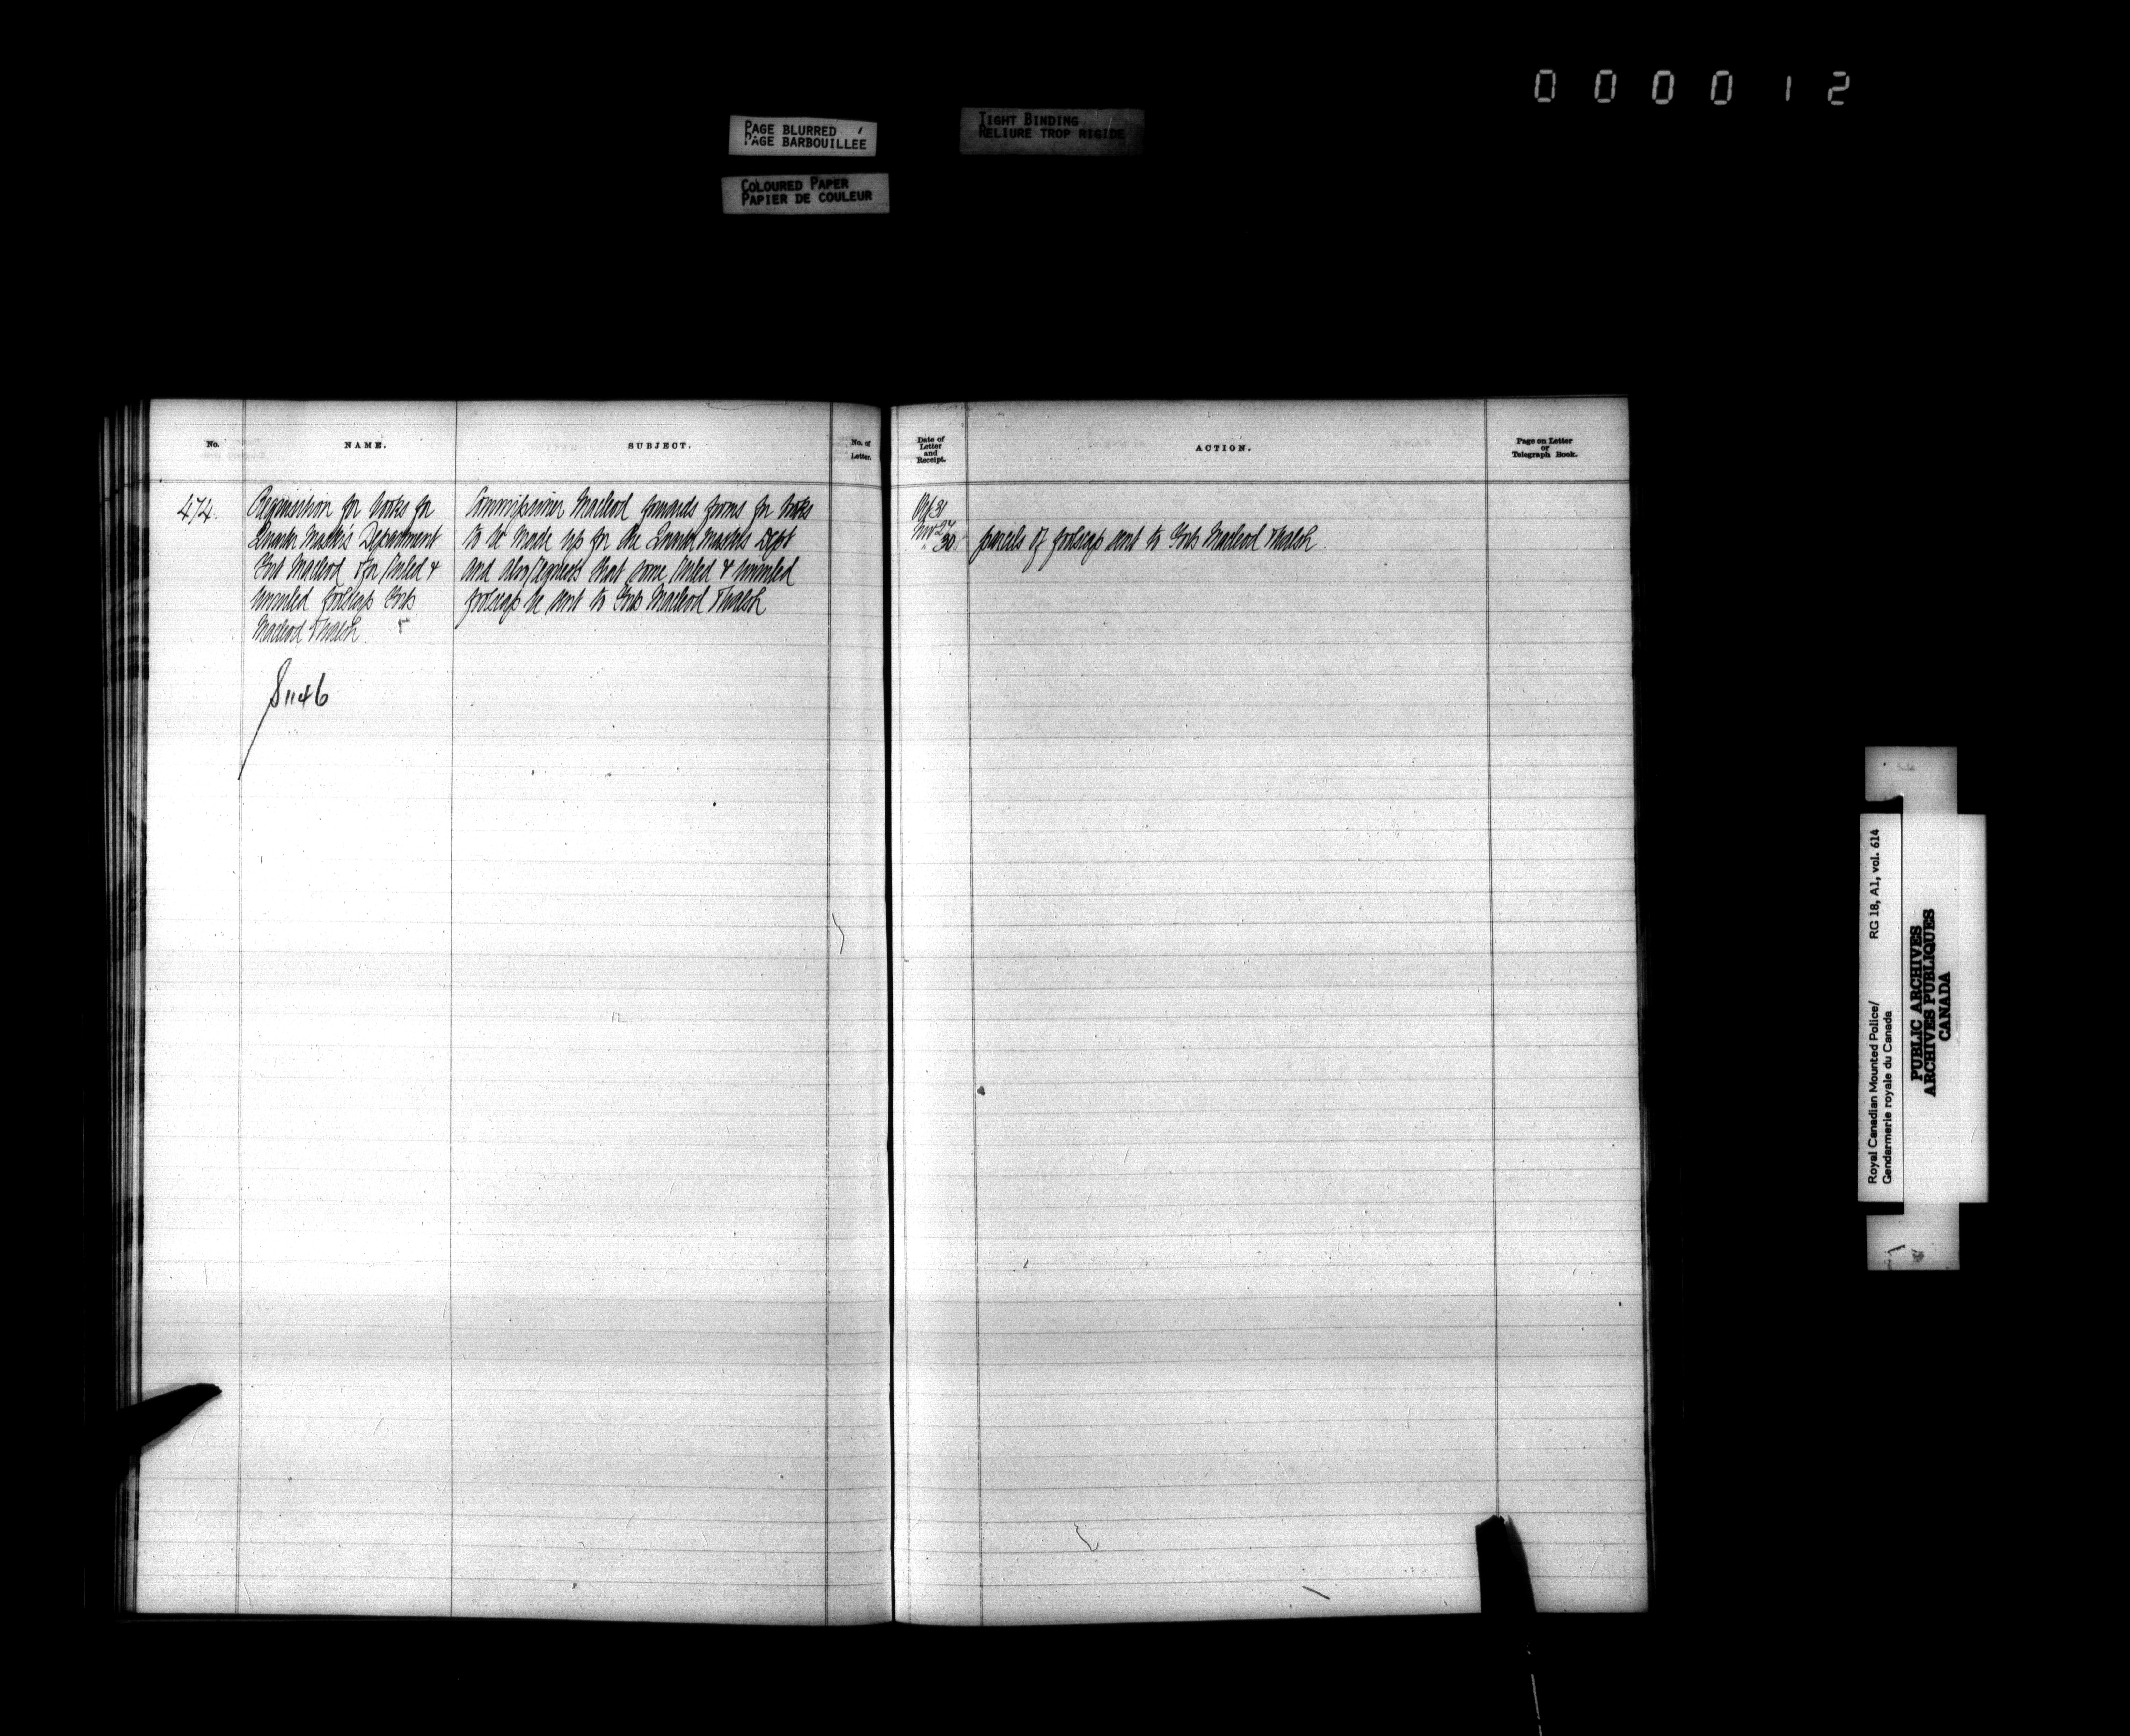 000012
PAGE BLURRED
PAGE BARBOUILLEE
TIGHT BINDING
RELIURE TROP RIGIDE
COLOURED PAPER
PAPIER DE COULEUR
No.
NAME.
SUBJECT.
No. of
Letter.
474.
Requisition for books for
Quarter Master's Department
Fort Macleod & for ruled &
unruled foolscap Forts
Macleod & Walsh.
S 1146
Commissioner Macleod forwards forms for books
to be made up for the Quarter Masters Dept
and also requests that some ruled & unruled
foolscap be sent to Forts Macleod & Walsh
Date of
Letter
and
Receipt.
ACTION.
Page on Letter
or
Telegraph Book.
Oct 31
Nov 27
" 30 parcels of foolscap sent to Forts Macleod & Walsh.
Royal Canadian Mounted Police/
Gendarmerie royale du Canada
RG 18, A1, vol. 614
PUBLIC ARCHIVES
ARCHIVES PUBLIQUES
CANADA